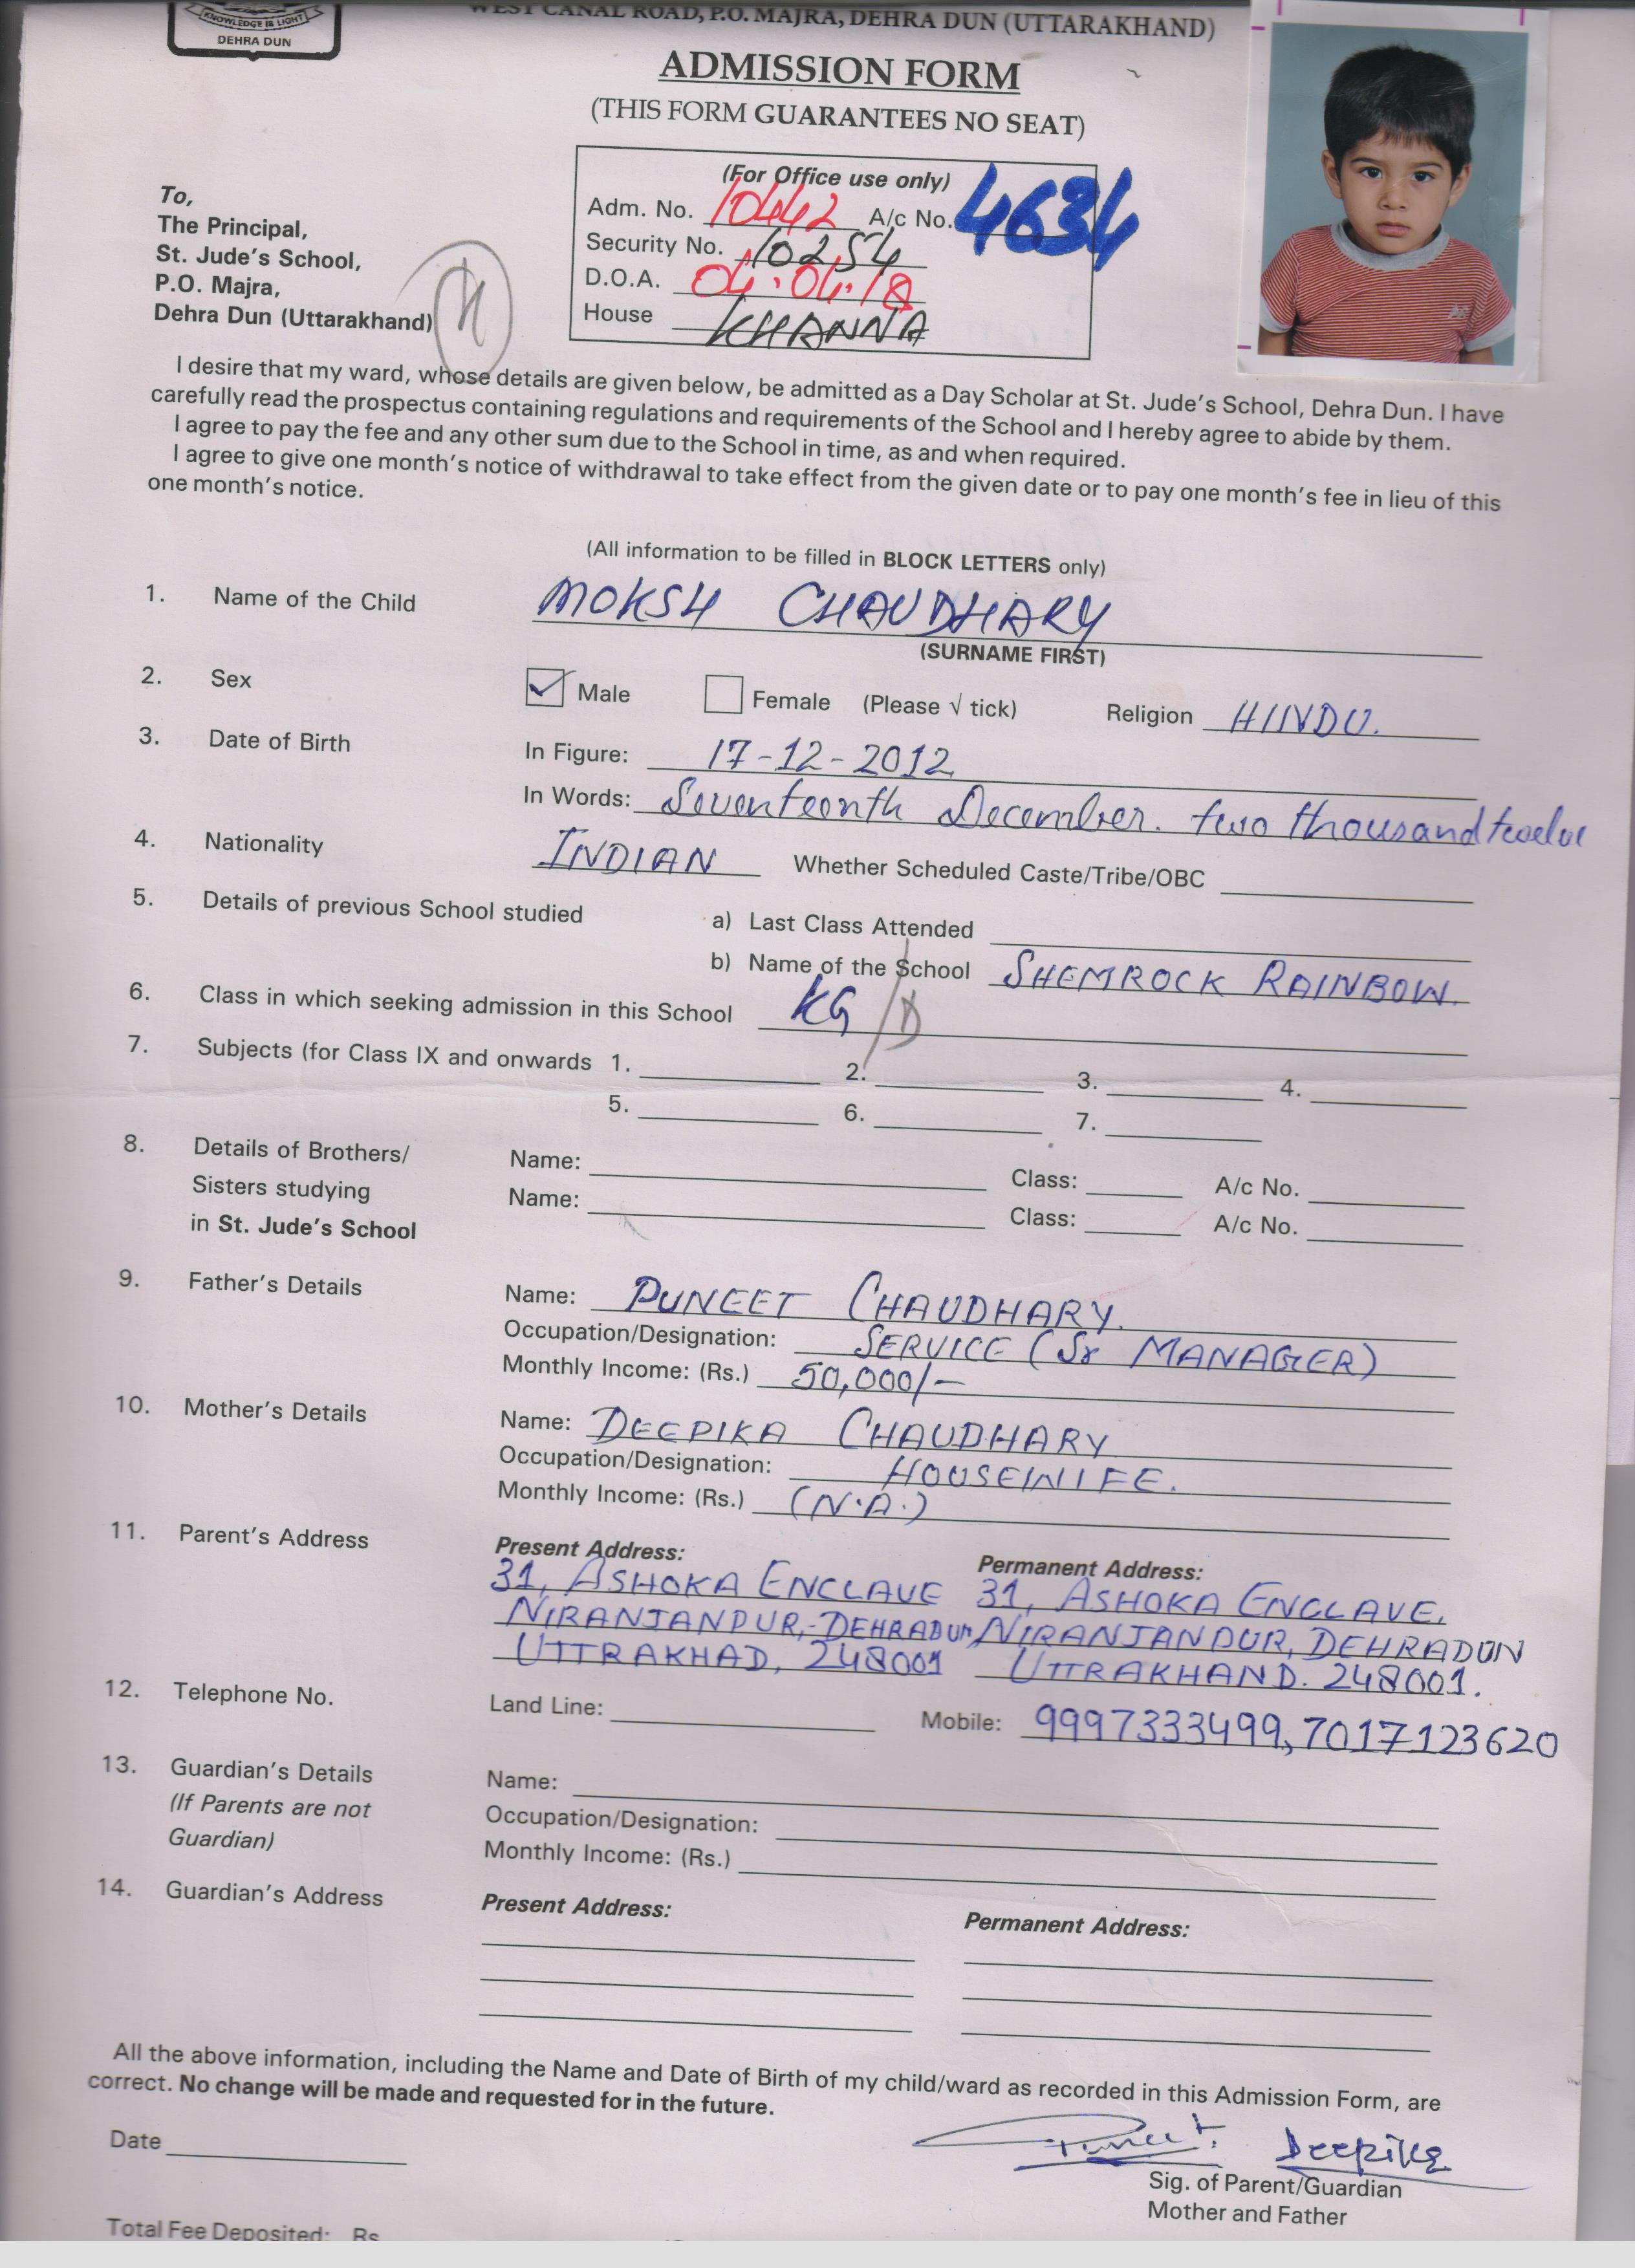 KNOWLEDGE IS LIGHT
DEHRA DUN
WEST CANAL ROAD, P.O. MAJRA, DEHRA DUN (UTTARAKHAND)
ADMISSION FORM
(THIS FORM GUARANTEES NO SEAT)
(For Office use only)
Adm. No. 10442 A/c No. 4634
Security No. 10254
D.O.A. 04.04.18
House KHANNA
To,
The Principal,
St. Jude's School,
P.O. Majra,
Dehra Dun (Uttarakhand)
I desire that my ward, whose details are given below, be admitted as a Day Scholar at St. Jude's School, Dehra Dun. I have
carefully read the prospectus containing regulations and requirements of the School and I hereby agree to abide by them.
I agree to pay the fee and any other sum due to the School in time, as and when required.
I agree to give one month's notice of withdrawal to take effect from the given date or to pay one month's fee in lieu of this
one month's notice.
(All information to be filled in BLOCK LETTERS only)
1. Name of the Child MOKSH CHAUDHARY
(SURNAME FIRST)
2. Sex Male Female (Please √ tick) Religion HINDU.
3. Date of Birth In Figure: 17-12-2012
In Words: Seventeenth December. two thousand twelve
4. Nationality INDIAN Whether Scheduled Caste/Tribe/OBC
5. Details of previous School studied a) Last Class Attended
b) Name of the School SHEMROCK RAINBOW.
6. Class in which seeking admission in this School KG /D
7. Subjects (for Class IX and onwards 1. 2. 3. 4.
5. 6. 7.
8. Details of Brothers/ Name: Class: A/c No.
Sisters studying Name: Class: A/c No.
in St. Jude's School
9. Father's Details Name: PUNEET CHAUDHARY.
Occupation/Designation: SERVICE (Sr MANAGER)
Monthly Income: (Rs.) 50,000/-
10. Mother's Details Name: DEEPIKA CHAUDHARY
Occupation/Designation: HOUSEWIFE.
Monthly Income: (Rs.) (N.A.)
11. Parent's Address Present Address: Permanent Address:
31, ASHOKA ENCLAVE 31, ASHOKA ENCLAVE,
NIRANJANPUR,-DEHRADUN, NIRANJANPUR, DEHRADUN
UTTRAKHAD, 248001 UTTRAKHAND. 248001.
12. Telephone No. Land Line: Mobile: 9997333499, 7017123620
13. Guardian's Details Name:
(If Parents are not Occupation/Designation:
Guardian) Monthly Income: (Rs.)
14. Guardian's Address Present Address: Permanent Address:
All the above information, including the Name and Date of Birth of my child/ward as recorded in this Admission Form, are
correct. No change will be made and requested for in the future.
Date Puneet. Deepika
Sig. of Parent/Guardian
Mother and Father
Total Fee Deposited: Rs